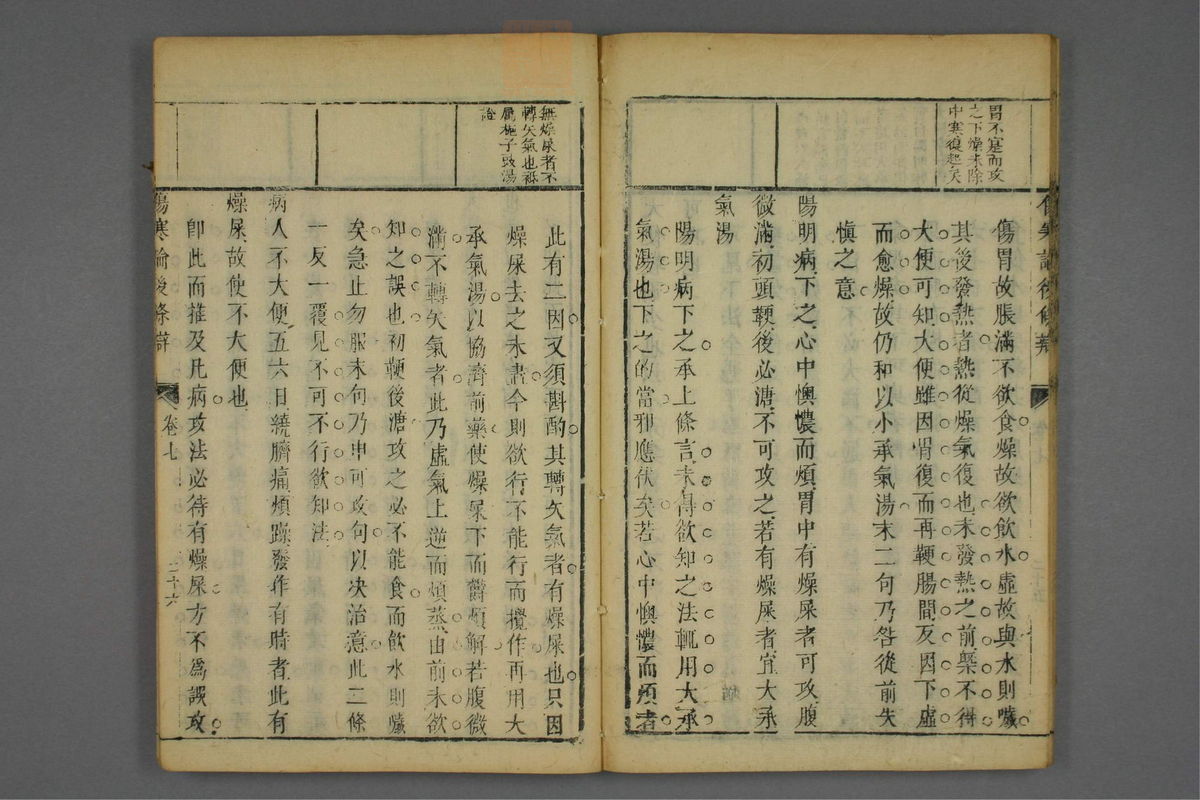 胃不寔而攻
之下燥未除
中寒復起矣
傷胃故脹滿不欲食燥故欲飲水虛故與水則噦
其後發熱者熱從燥氣復也未發熱之前槩不得
大便可知大便雖因胃復而再鞕腸間反因下虛
而愈燥故仍和以小承氣湯末二句乃咎從前失
愼之意
陽明病下之心中懊憹而煩胃中有燥屎者可攻腹
微滿初頭鞕後必溏不可攻之若有燥屎者宜大承
氣湯
陽明病下之承上條言未得欲知之法輒用大承
氣湯也下之的當邪應伏矣若心中懊憹而煩者
無燥屎者不
轉矢氣也秪
屬梔子豉湯
證
此有二因又須斟酌其轉矢氣者有燥屎也只因
燥屎去之未盡今則欲行不能行而攪作再用大
承氣湯以協濟前藥使燥屎下而鬱煩解若腹微
滿不轉矢氣者此乃虛氣上逆而煩蒸由前未欲
知之誤也初鞕後溏攻之必不能食而飲水則噦
矣急止勿服末句乃申可攻句以决治意此二條
一反一覆見不可不行欲知法
病人不大便五六日繞臍痛煩躁發作有時者此有
燥屎故使不大便也
卽此而推及凡病攻法必待有燥屎方不爲誤攻
傷寒論後條辯
卷七
二十六